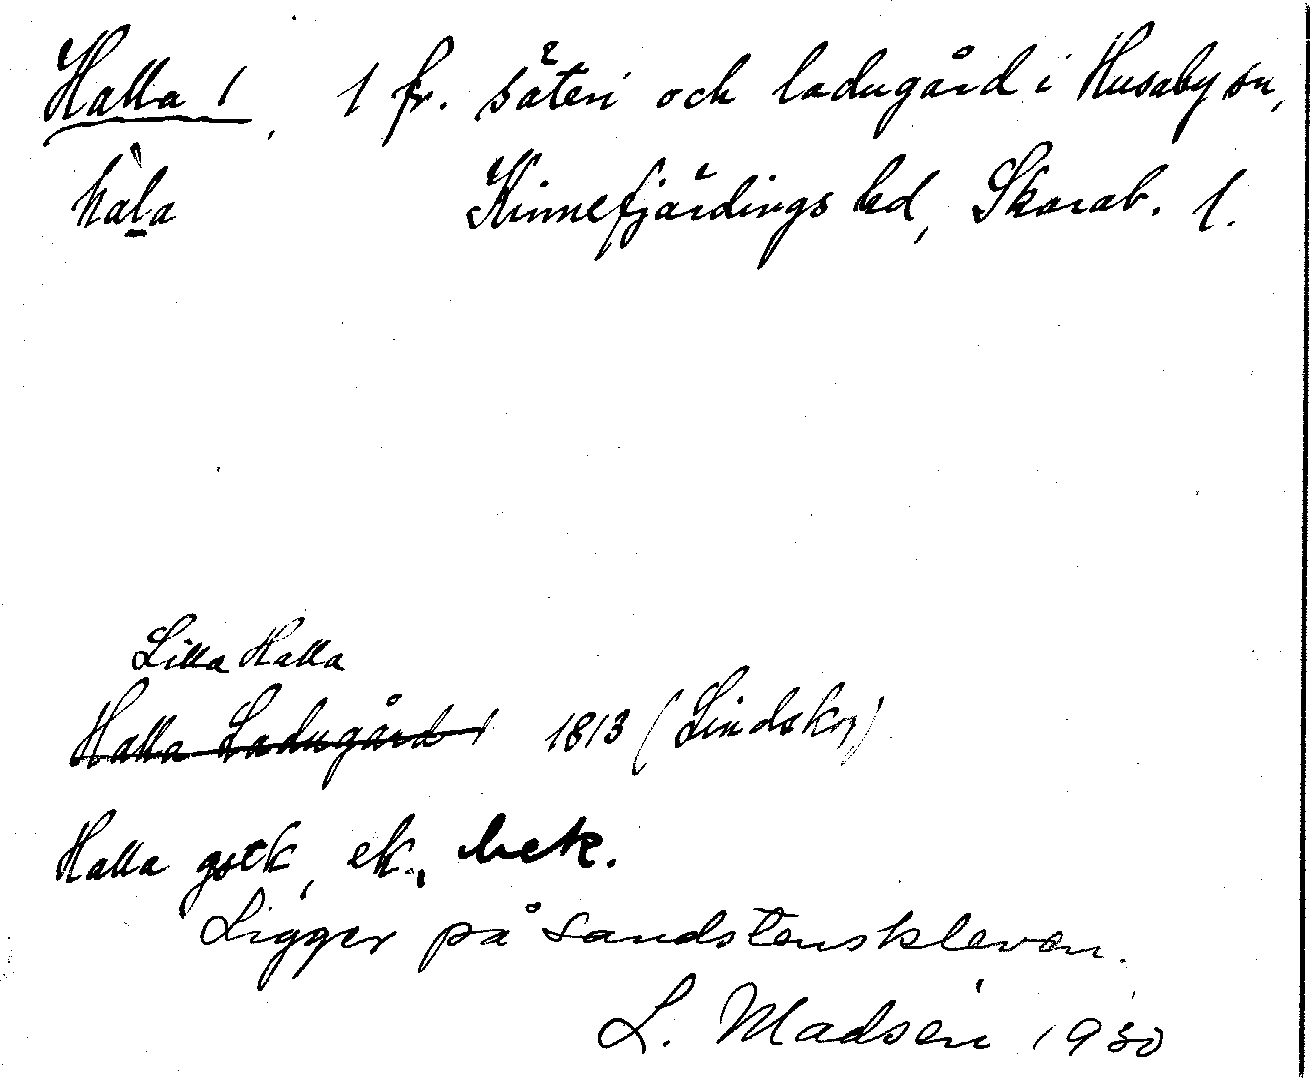 Halla /, 1 fr. säteri och ladugård i Husaby sn,
hàl̲a Kinnefjärdings hd, Skarab. l.
Lilla Halla
Halla Ladugård / 1813 (Lindskog)
Halla gstk, ek., bek.
Ligger på sandstenskleven.
L. Madsén 1930